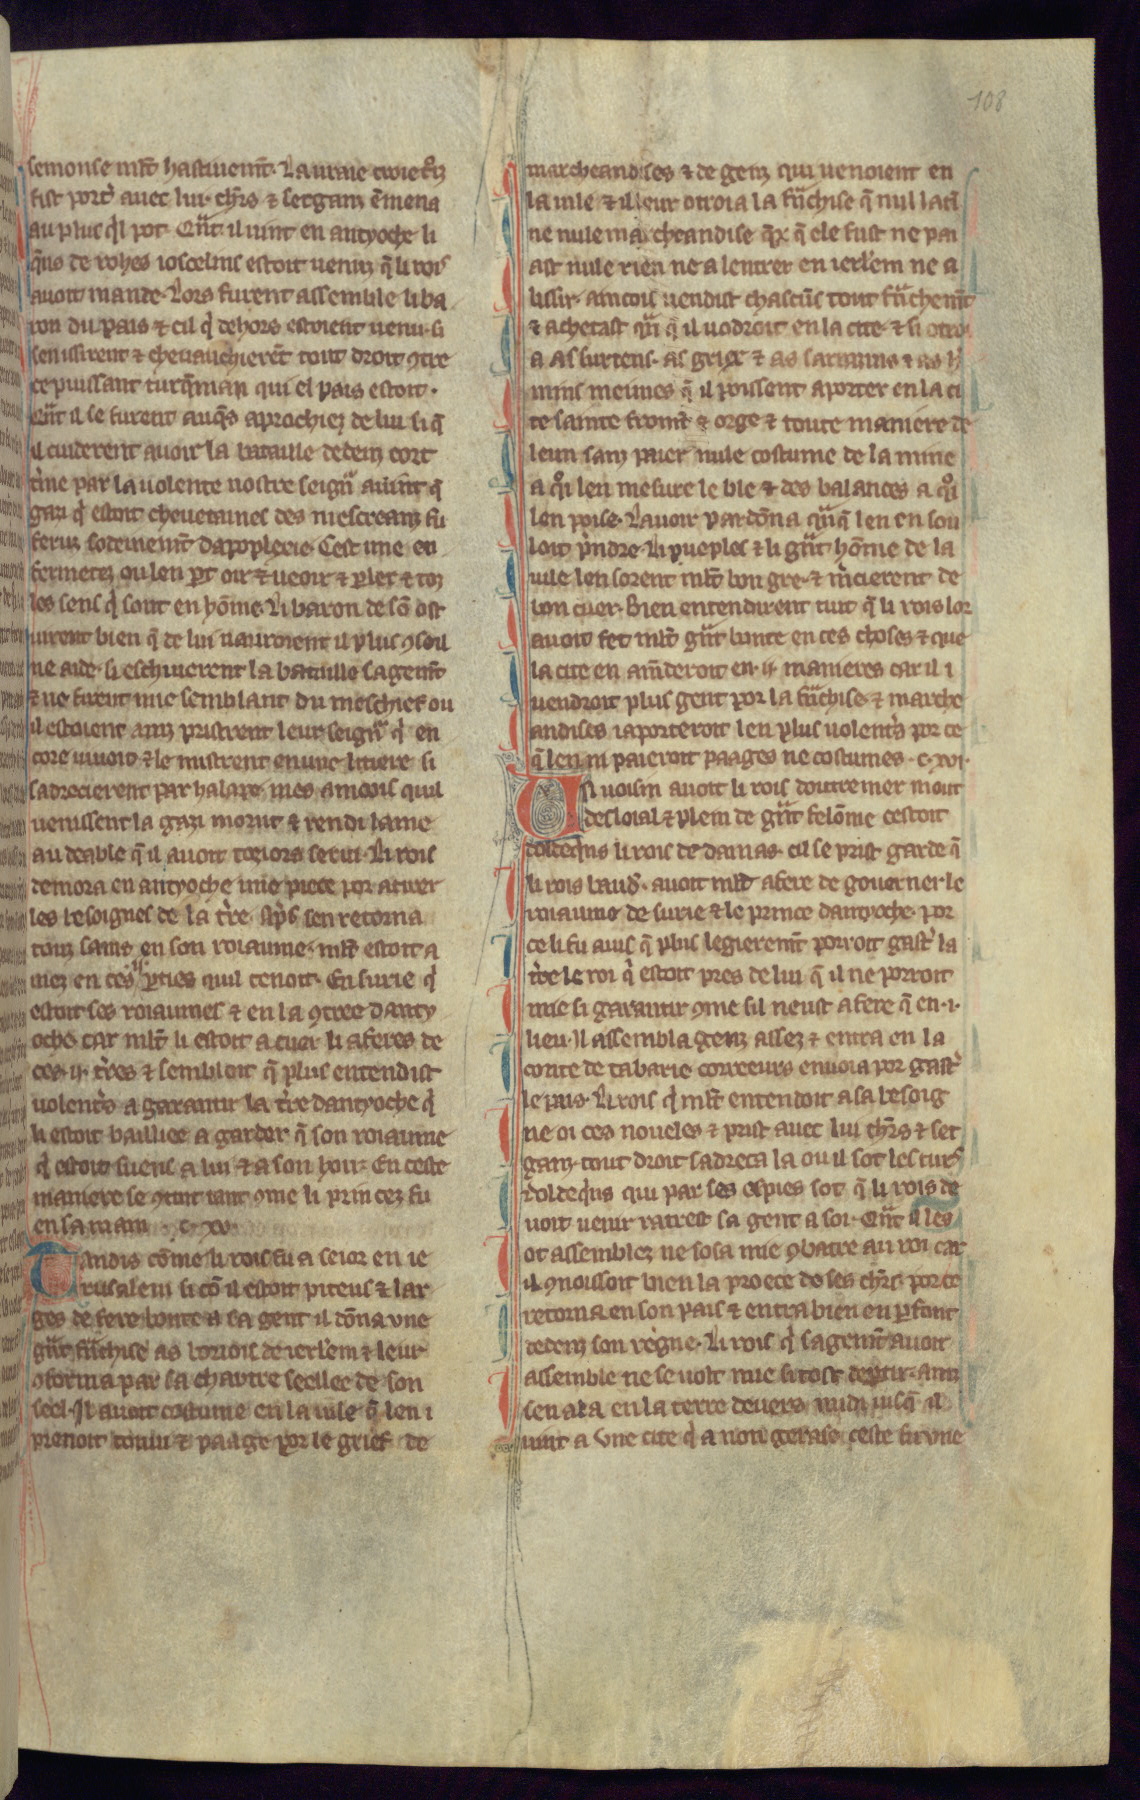 108
semonse ml̃t hastiuemẽt. La uraie croiz en
fist port̾ auec lui. ch̾rs ⁊ serganz ẽmena
au plus q̾l pot. Q̃nt il uint en antyoche li
q̃ns de rohes ioscelins estoit uenuz q̃ li rois
auoit mande. Lors furent assemble li ba
ron du pais ⁊ cil q̾ dehors estoient uenu. si
sen issirent ⁊ cheuauchierẽt tout droit ꝯtre
ce puissant turq̃man qui el pais estoit.
Q̃nt il se furent auq̃s aprochiez de lui si q̃
il cuiderent auoir la bataille dedenz cort
t̾me par la uolente nostre seign̾ auint q̃
gazi q̾ estoit cheuetaines des mescreanz fu
feruz sodeinemẽt dapoplexie. Cest une en
fermetez ou len ꝑt oir ⁊ ueoir ⁊ ꝑler ⁊ toz
les sens q̾ sont en hõme. Li baron de sõ ost
uirent bien q̃ de lui nauroient il plus ꝯseil
ne aide. si eschiuerent la bataille sagemẽt
⁊ ne firent mie semblant du meschief ou
il estoient ainz pristrent leur seign̾ q̾ en
core uiuoit ⁊ le mistrent en une litiere si
sadrecierent par halape mes aincois quil
uenissent la gazi morut ⁊ rendi lame
au deable q̃ il auoit toziors serui. Li rois
demora en antyoche une piece por atirer
les besoignes de la t̾re. ap̾s sen retorna
touz sains en son roiaume. ml̃t estoit a
mez en ces .ii. ꝑties quil tenoit. En surie q̾
estoit ses roiaumes ⁊ en la ꝯtree danty
oche. car ml̃t li estoit a cuer li aferes de
ces .ii. t̾res ⁊ sembloit q̃ plus entendist
uolent̾s a garantir la t̾re dantyoche q̾
li estoit bailliee a garder q̃ son roiaume
q̾ estoit suens a lui ⁊ a son hoir. En ceste
maniere se ꝯtint tant ꝯme li princez fu
en sa main. c. xv.
Tandis cõme li rois fu a seior en ie
rusalem si cõ il estoit piteus ⁊ lar
ges de fere bonte a sa gent il dõna une
g̾nt f̾nchise as boriois de ierl̃em ⁊ leur
ꝯferma par sa chartre seellee de son
seel. Il auoit costume en la uile q̃ len i
prenoit tonliu ⁊ paage por le grief de
marcheandises ⁊ de genz qui uenoient en
la uile ⁊ il leur otroia la f̾nchise q̃ nul latĩ
ne nule marcheandise q̃x q̃ ele fust ne pai
ast nule rien ne a lentrer en ierl̃em ne a
lissir. aincois uendist chascũs tout f̾nchemẽt
⁊ achetast q̃n q̃ il uodroit en la cite. ⁊ si otroi
a as suriens. as griex ⁊ as sarrazins ⁊ as h̾
mins meimes q̃ il poissent aporter en la ci
te sainte fromẽt ⁊ orge ⁊ toute maniere de
leun sanz paier nule costume de la mine
a q̾i len mesure le ble ⁊ des balances a q̾i
len poise. Lauoir pardõna q̃nq̃ len en sou
loit p̾ndre. Li pueples ⁊ li g̾nt hõme de la
uile len sorent ml̃t bon gre. ⁊ m̾cierent de
bon cuer. Bien entendirent tuit q̃ li rois lor
auoit fet ml̃t g̾nt bonte en ces choses ⁊ que
la cite en am̃deroit en .ii. manieres car il i
uendroit plus gent por la f̾nchise. ⁊ marche
andises i aporteroit len plus uolent̾s por ce
q̃ len ni paieroit paages ne costumes. c. xvi.
Un uoisin auoit li rois doutremer mout
desloial ⁊ plein de g̾nt felõnie cestoit
doldeq̾ns li rois de damas. cil se prist garde q̃
li rois baud̾. auoit ml̃t afere de gouerner le
roiaume de surie ⁊ le prince dantyoche. por
ce li fu auis q̃ plus legieremẽt porroit gast̾ la
t̾re le roi q̾ estoit pres de lui q̃ il ne porroit
mie si garantir ꝯme sil neust afere q̃ en .i.
lieu. Il assembla genz assez ⁊ entra en la
conte de tabarie correeurs enuoia por gast̾
le pais. Li rois q̾ ml̃t entendoit a sa besoig
ne oi ces noueles ⁊ prist auec lui ch̾rs ⁊ ser
ganz. tout droit sadreca la ou il sot les turs
doldeq̾ns qui par ses espies sot q̃ li rois de
uoit uenir ratrest sa gent a soi. Q̃nt il les
ot assemblez ne sosa mie ꝯbatre au roi car
il ꝯnoissoit bien la proece de ses ch̾rs. por ce
retorna en son pais ⁊ entra bien en ꝑfont
dedenz son regne. Li rois q̾ sa gent auoit
assemble ne se uolt mie si tost deꝑtir. ainz
sen ala en la terre deuers midi iusq̃ il
uint a une cite q̾ a non gerase. ceste fu une